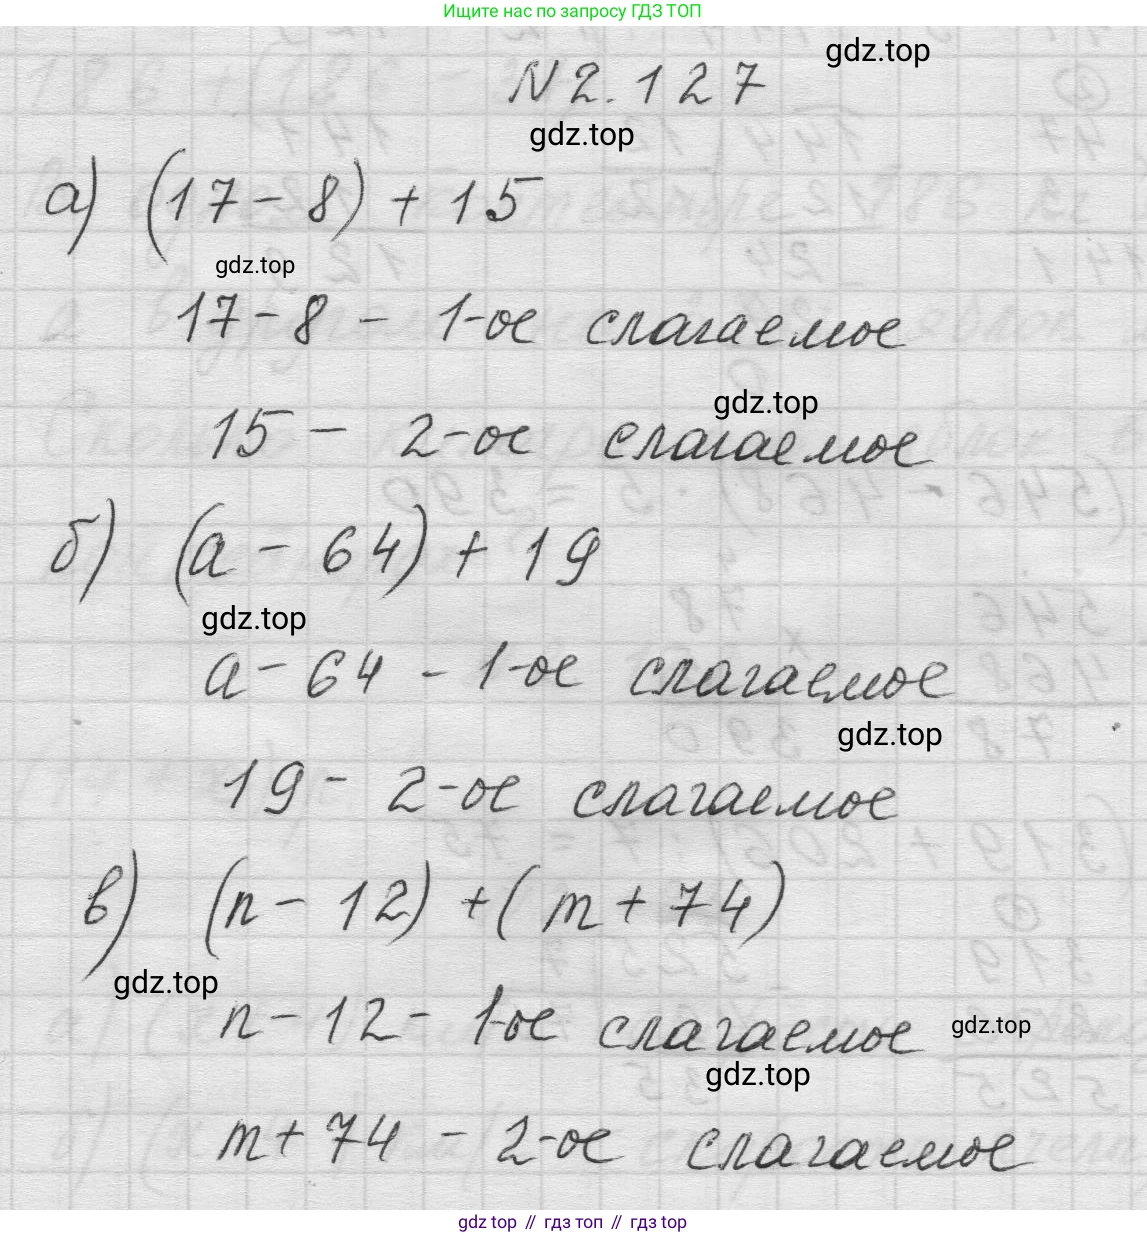 Ищите нас по запросу ГДЗ ТОП
gdz.top
N 2.127
gdz.top
а) (17-8)+15
gdz.top
17-8 - 1-ое слагаемое
gdz.top
15 - 2-ое слагаемое
б) (a - 64) + 19
gdz.top
a - 64 - 1-ое слагаемое
gdz.top
19 - 2-ое слагаемое
в) (n - 12) + (m + 74)
gdz.top
n - 12 - 1-ое слагаемое
gdz.top
gdz.top
m + 74 - 2-ое слагаемое
gdz top // гдз топ // gdz top